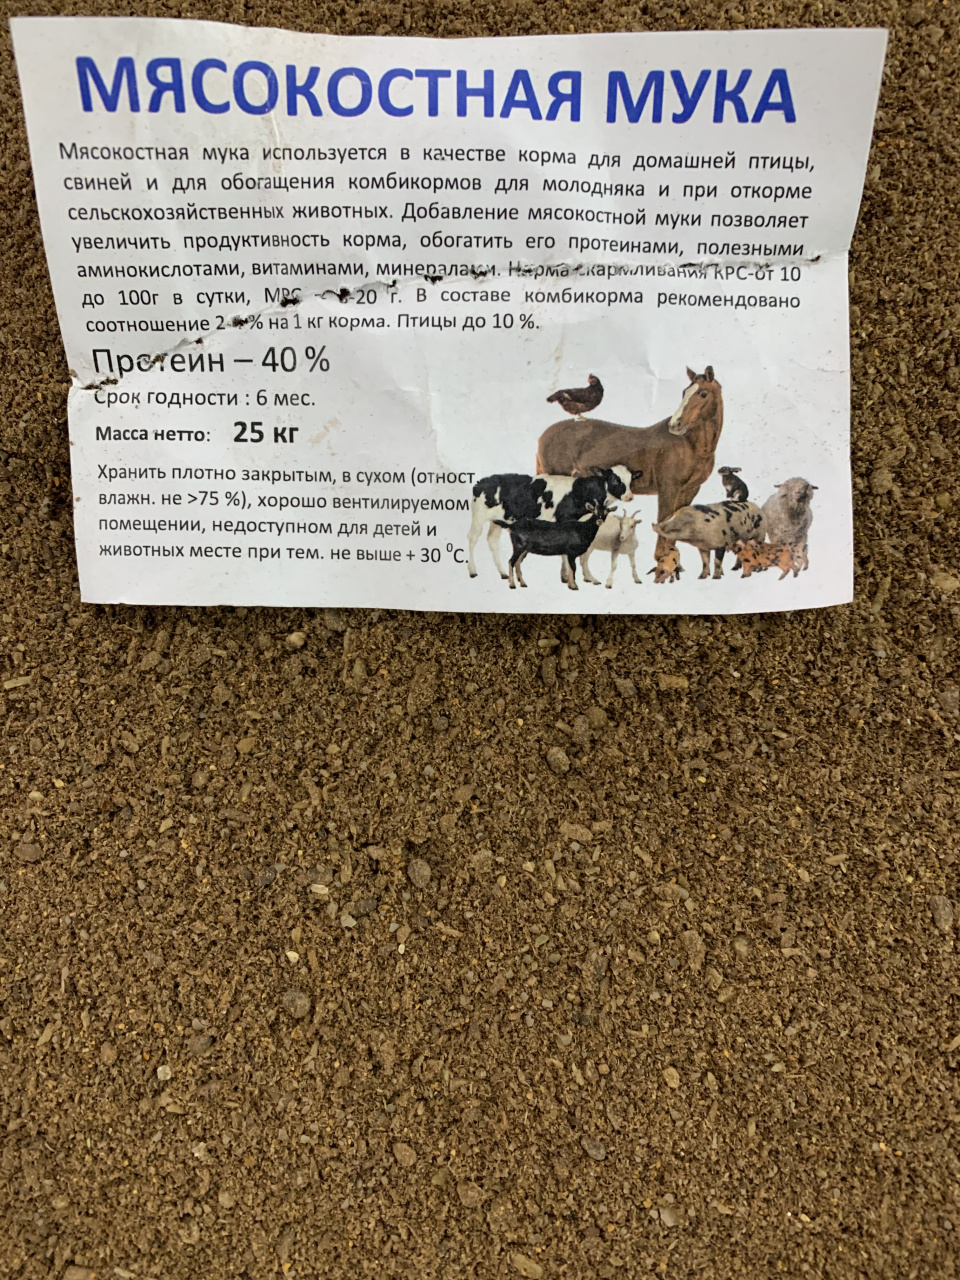 МЯСОКОСТНАЯ МУКА
Мясокостная мука используется в качестве корма для домашней птицы,
свиней и для обогащения комбикормов для молодняка и при откорме
сельскохозяйственных животных. Добавление мясокостной муки позволяет
увеличить продуктивность корма, обогатить его протеинами, полезными
аминокислотами, витаминами, минералами. Норма скармливания КРС-от 10
до 100г в сутки, МРС 20 г. В составе комбикорма рекомендовано
соотношение % на 1 кг корма. Птицы до 10 %.
Протеин – 40 %
Срок годности : 6 мес.
Масса нетто: 25 кг
Хранить плотно закрытым, в сухом (отност
влажн. не >75 %), хорошо вентилируемом
помещении, недоступном для детей и
животных месте при тем. не выше + 30 ⁰С.